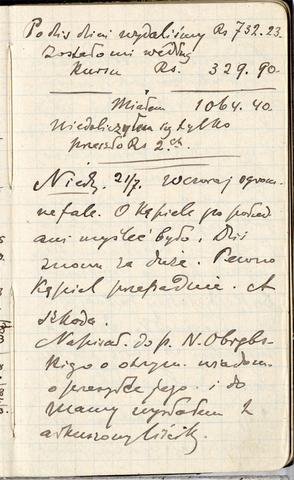 Po dziś dzień wydaliśmy Rs 732.23.
zostało mi według
kursu Rs. 329.90.
Miałem 1064.40.
Niedoliczyłem się tylko
przeszło Rs 2.
Niedz. 21/7. wczoraj ogrom
ne fale. O kąpieli po połud
ani myśleć było. Dziś
znowu za duże. Pewno
kąpiel przepadnie. A
szkoda.
Napisał. do p. N. Obrębs
kiego o otrzym. wiadom.
o przesyłce jego. i do
Mamy wysłałem 2
arkuszowy liścik.